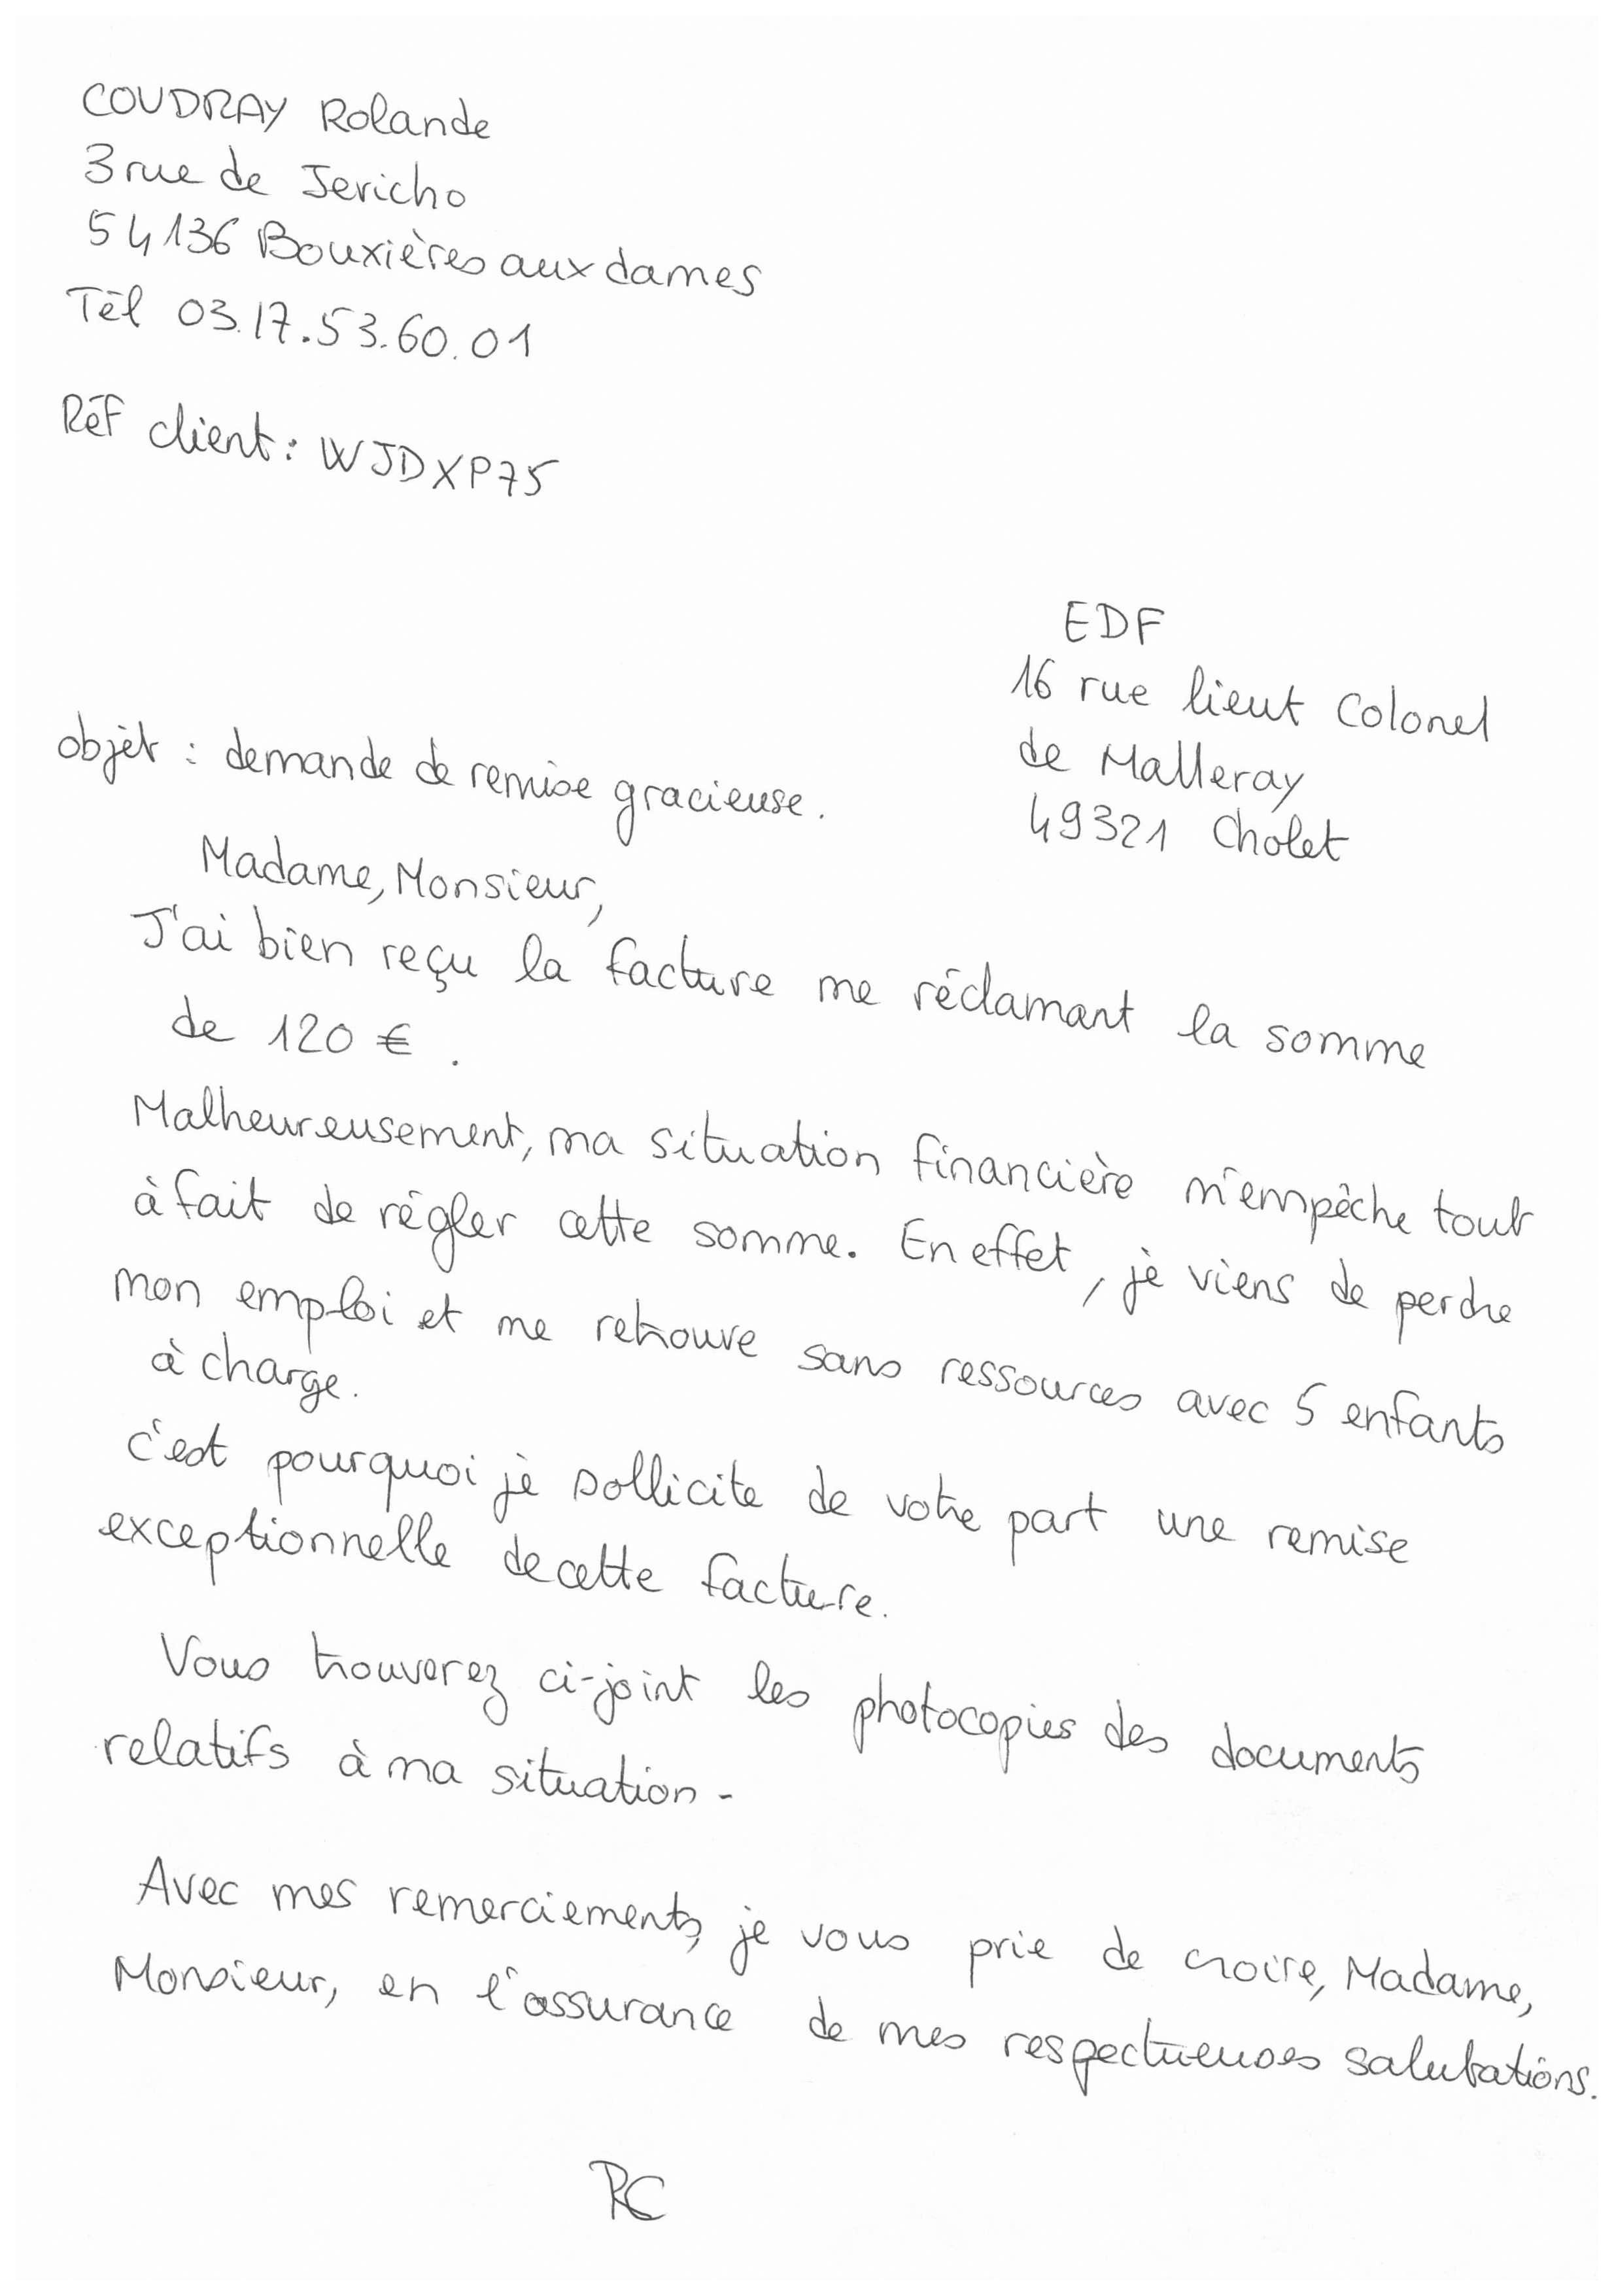 COUDRAY Rolande
3 rue de Jericho
54136 Bouxières aux dames
Tél 03.17.53.60.01
Réf client : WJDXP75
EDF
16 rue lieut Colonel
de Malleray
49321 Cholet
objet : demande de remise gracieuse.
Madame, Monsieur,
J'ai bien reçu la facture me réclamant la somme
de 120 €.
Malheureusement, ma situation financière m'empêche tout
à fait de régler cette somme. En effet, je viens de perdre
mon emploi et me retrouve sans ressources avec 5 enfants
à charge.
c'est pourquoi je sollicite de votre part une remise
exceptionnelle de cette facture.
Vous trouverez ci-joint les photocopies des documents
relatifs à ma situation -
Avec mes remerciements, je vous prie de croire, Madame,
Monsieur, en l'assurance de mes respectueuses salutations.
RC